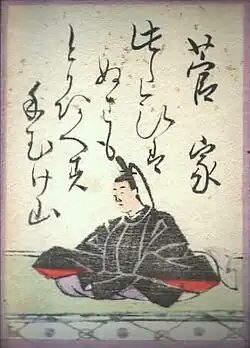 菅家
此たひは
ぬさも
とりあへす
手むけ山